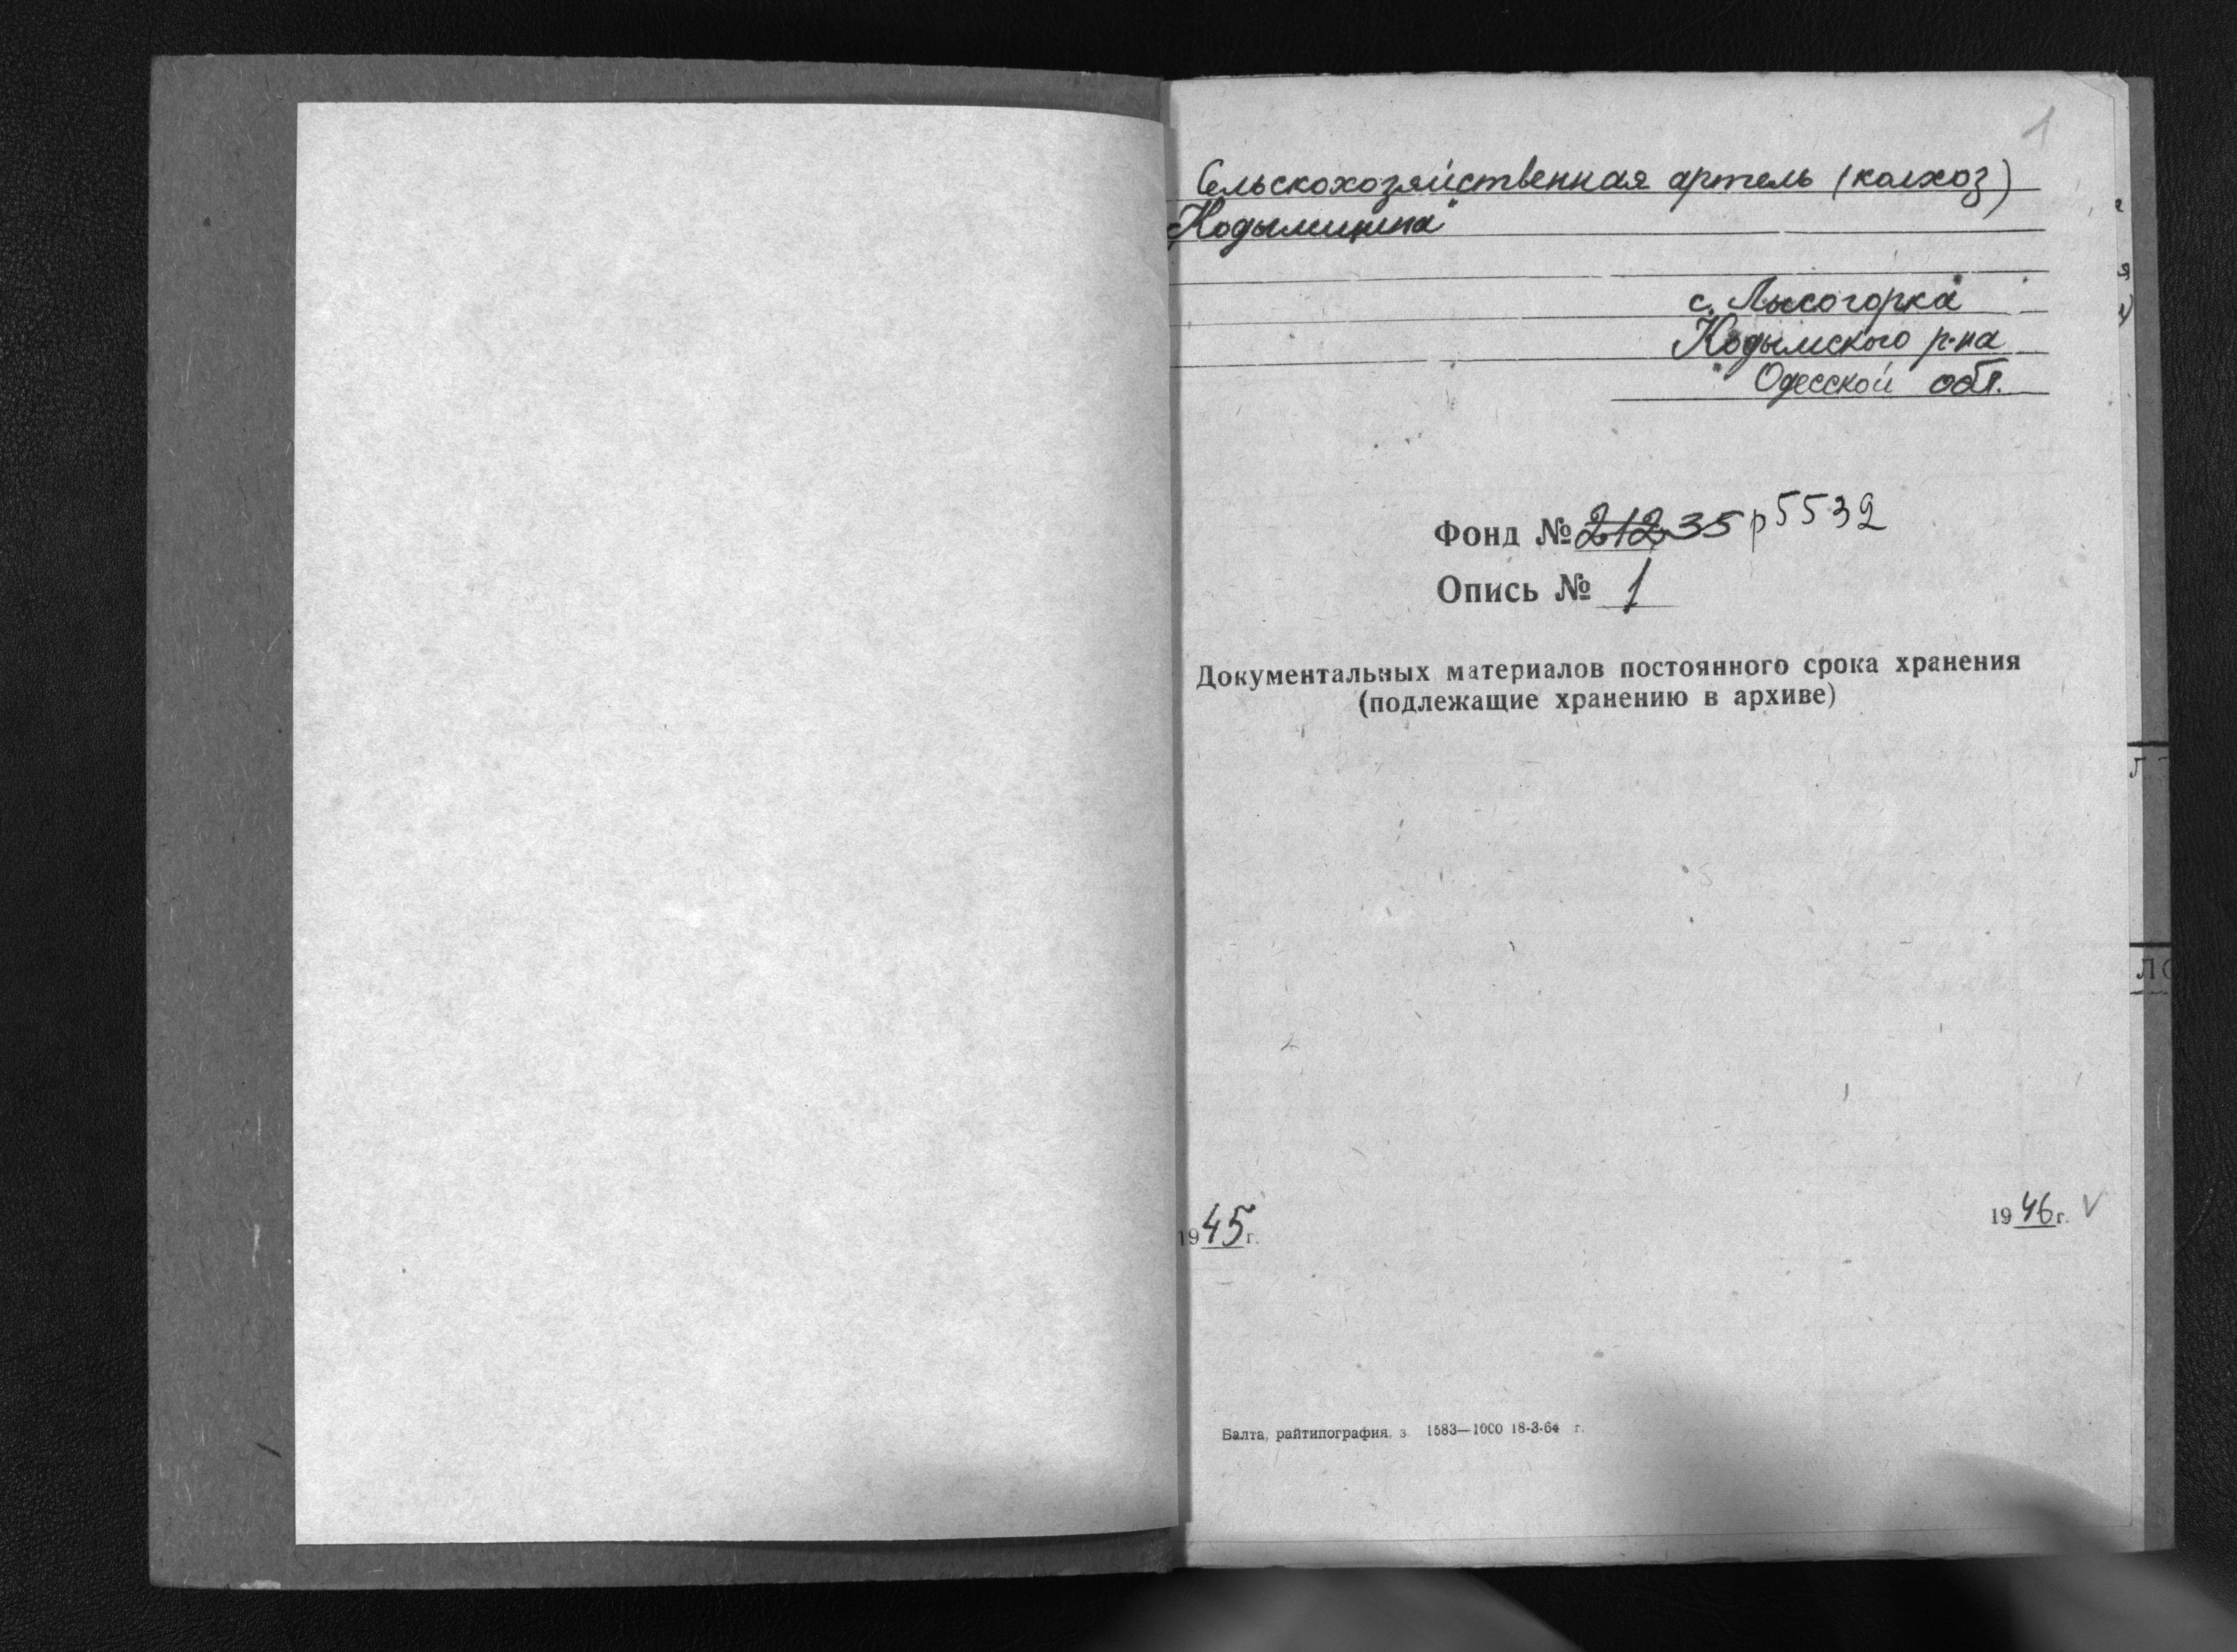 1
Сельскохозяйственная артель (колхоз)
„Кодымщина"
с. Лысогорка
Кодымского р-на
Одесской обл.
Фонд № 212 35 р5532
Опись № 1
Документальных материалов постоянного срока хранения
(подлежащие хранению в архиве)
1945 г.
1946 г. V
Балта, райтипография, з. 1583—1000 18-3-64 г.